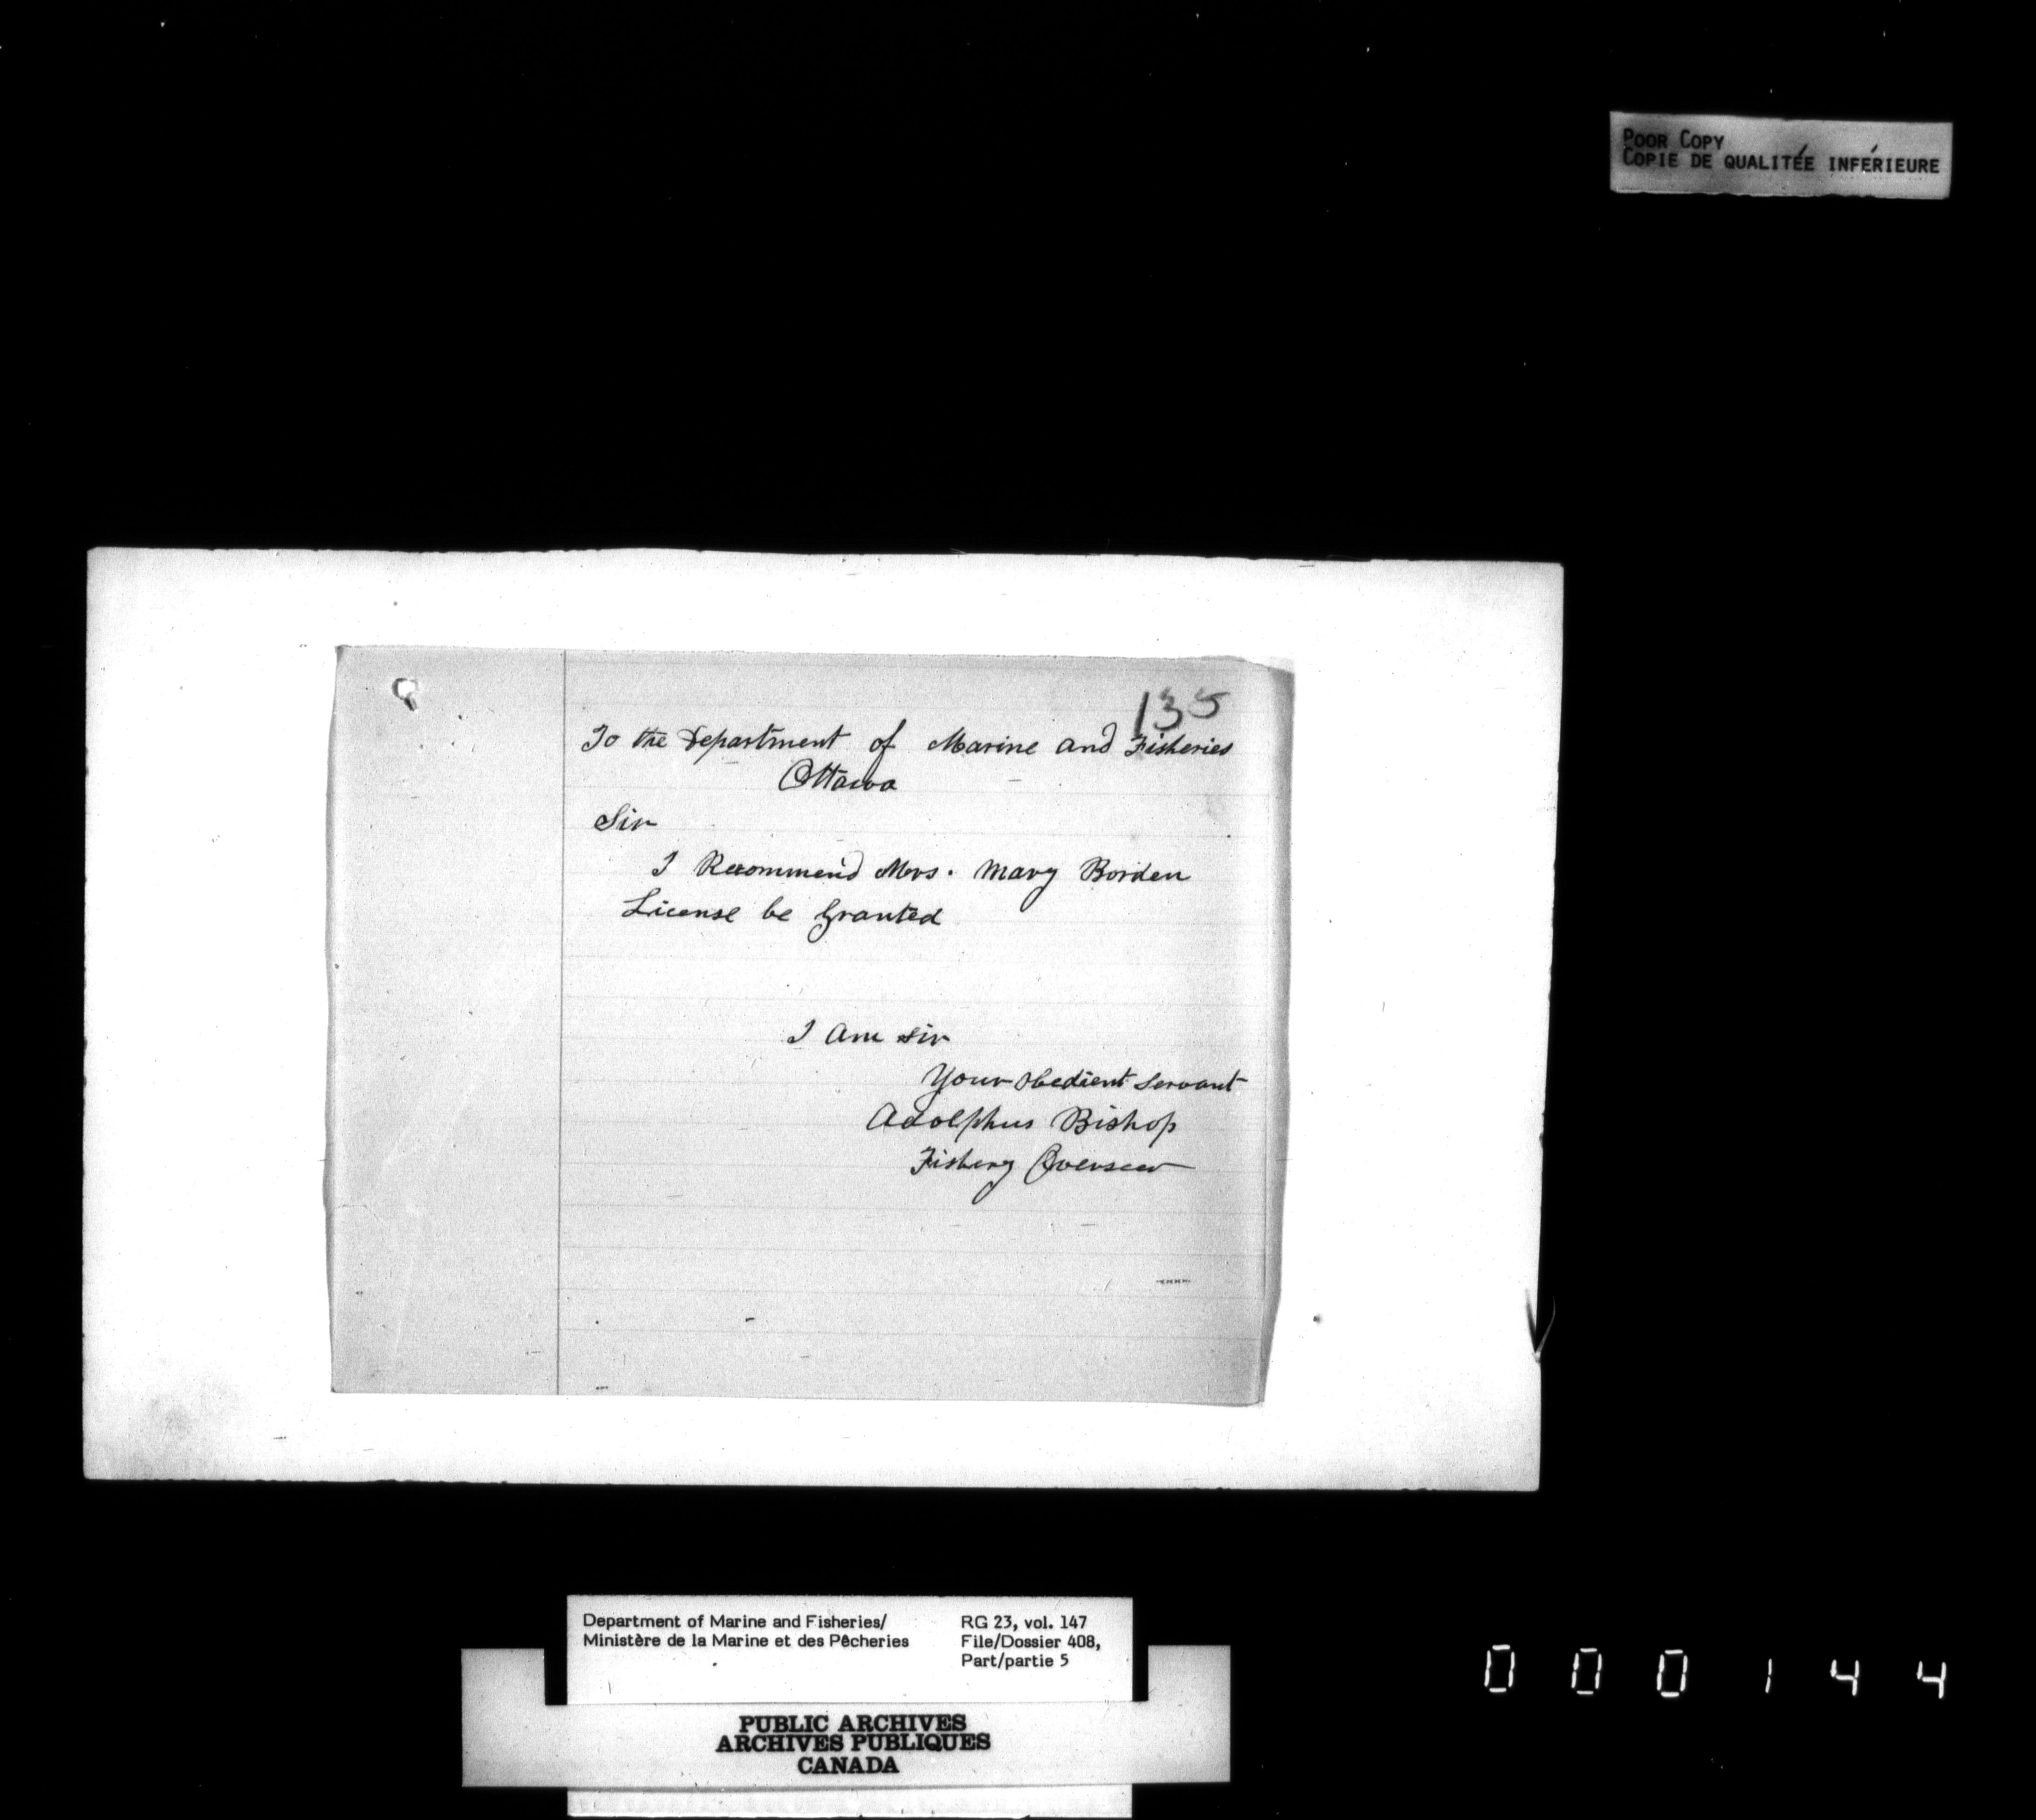 POOR COPY
COPIE DE QUALITÉE INFÉRIEURE
135
To the Department of Marine and Fisheries
Ottawa
Sir
I Recommend Mrs. Mary Borden
License be Granted
I Am Sir
Your Obedient Servant
Adolphus Bishop
Fishery Overseer
Department of Marine and Fisheries/
Ministère de la Marine et des Pêcheries
RG 23, vol. 147
File/Dossier 408,
Part/partie 5
PUBLIC ARCHIVES
ARCHIVES PUBLIQUES
CANADA
000144